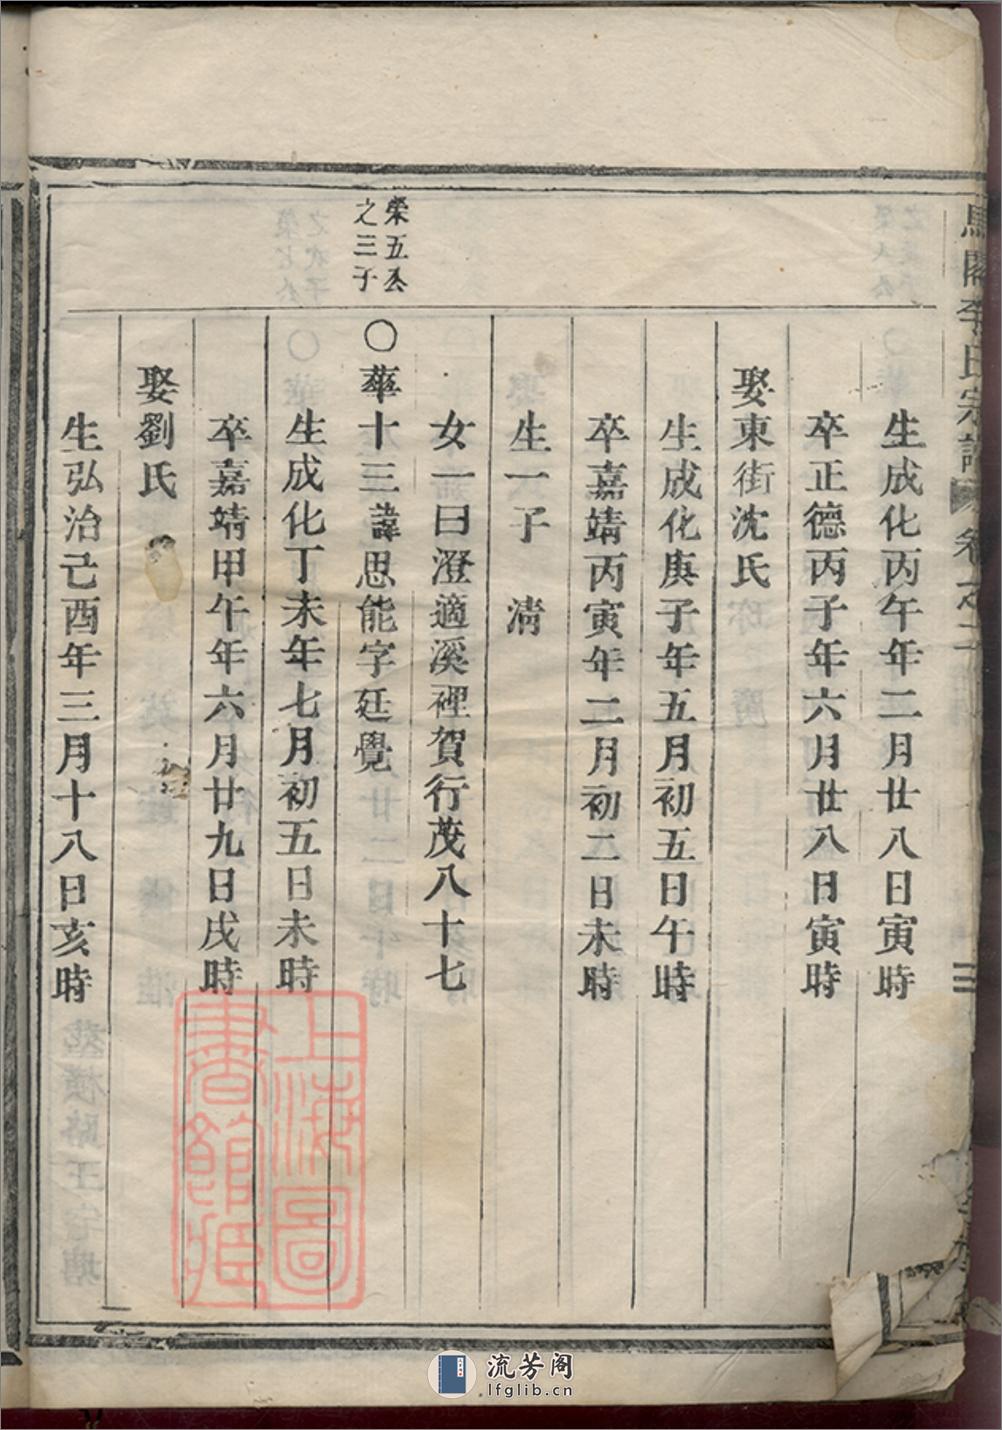 馬閣李氏宗譜 卷之 三
生成化丙午年二月廿八日寅時
卒正德丙子年六月廿八日寅時
娶東街沈氏
生成化庚子年五月初五日午時
卒嘉靖丙寅年二月初二日未時
生一子 清
女一曰澄適溪裡賀行茂八十七
榮五公
之三子
〇華十三諱思能字廷覺
生成化丁未年七月初五日未時
卒嘉靖甲午年六月廿九日戌時
娶劉氏
生弘治己酉年三月十八日亥時
上海圖
書館藏
流芳阁
lfglib.cn